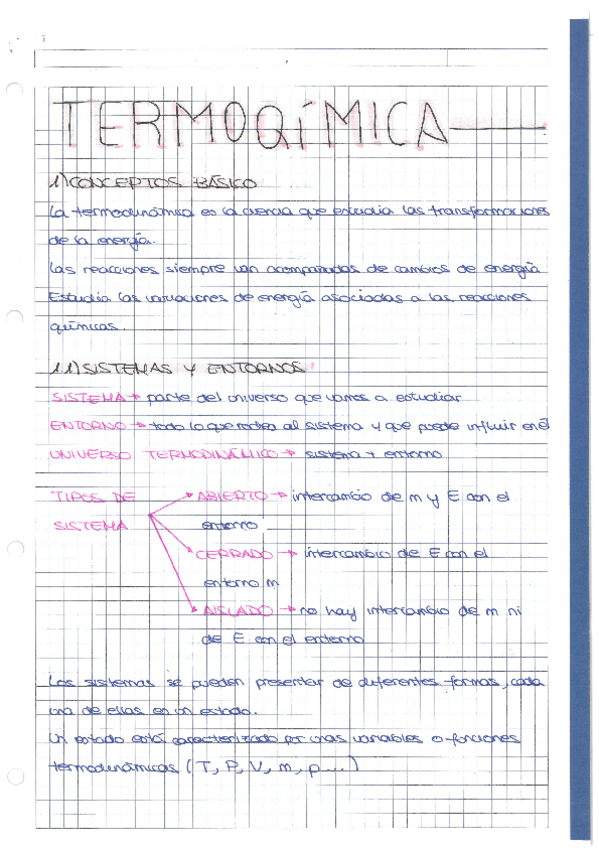 TERMOQíMICA
1) CONCEPTOS BÁSICO
La termodinámica es la ciencia que estudia las transformaciones
de la energía.
Las reacciones siempre van acompañadas de cambios de energía
Estudia las variaciones de energía asociadas a las reacciones
químicas.
1.1) SISTEMAS Y ENTORNOS
SISTEMA → parte del universo que vamos a estudiar
ENTORNO → todo lo que rodea al sistema y que puede influir en él
UNIVERSO TERMODINÁMICO → sistema + entorno
TIPOS DE SISTEMA
ABIERTO → intercambio de m y E con el
entorno
CERRADO → intercambio de E con el
entorno m
AISLADO → no hay intercambio de m ni
de E con el entorno
Los sistemas se pueden presentar de diferentes formas, cada
una de ellas en un estado.
Un estado está caracterizado por unas variables o funciones
termodinámicas (T, P, V, m, ρ...)